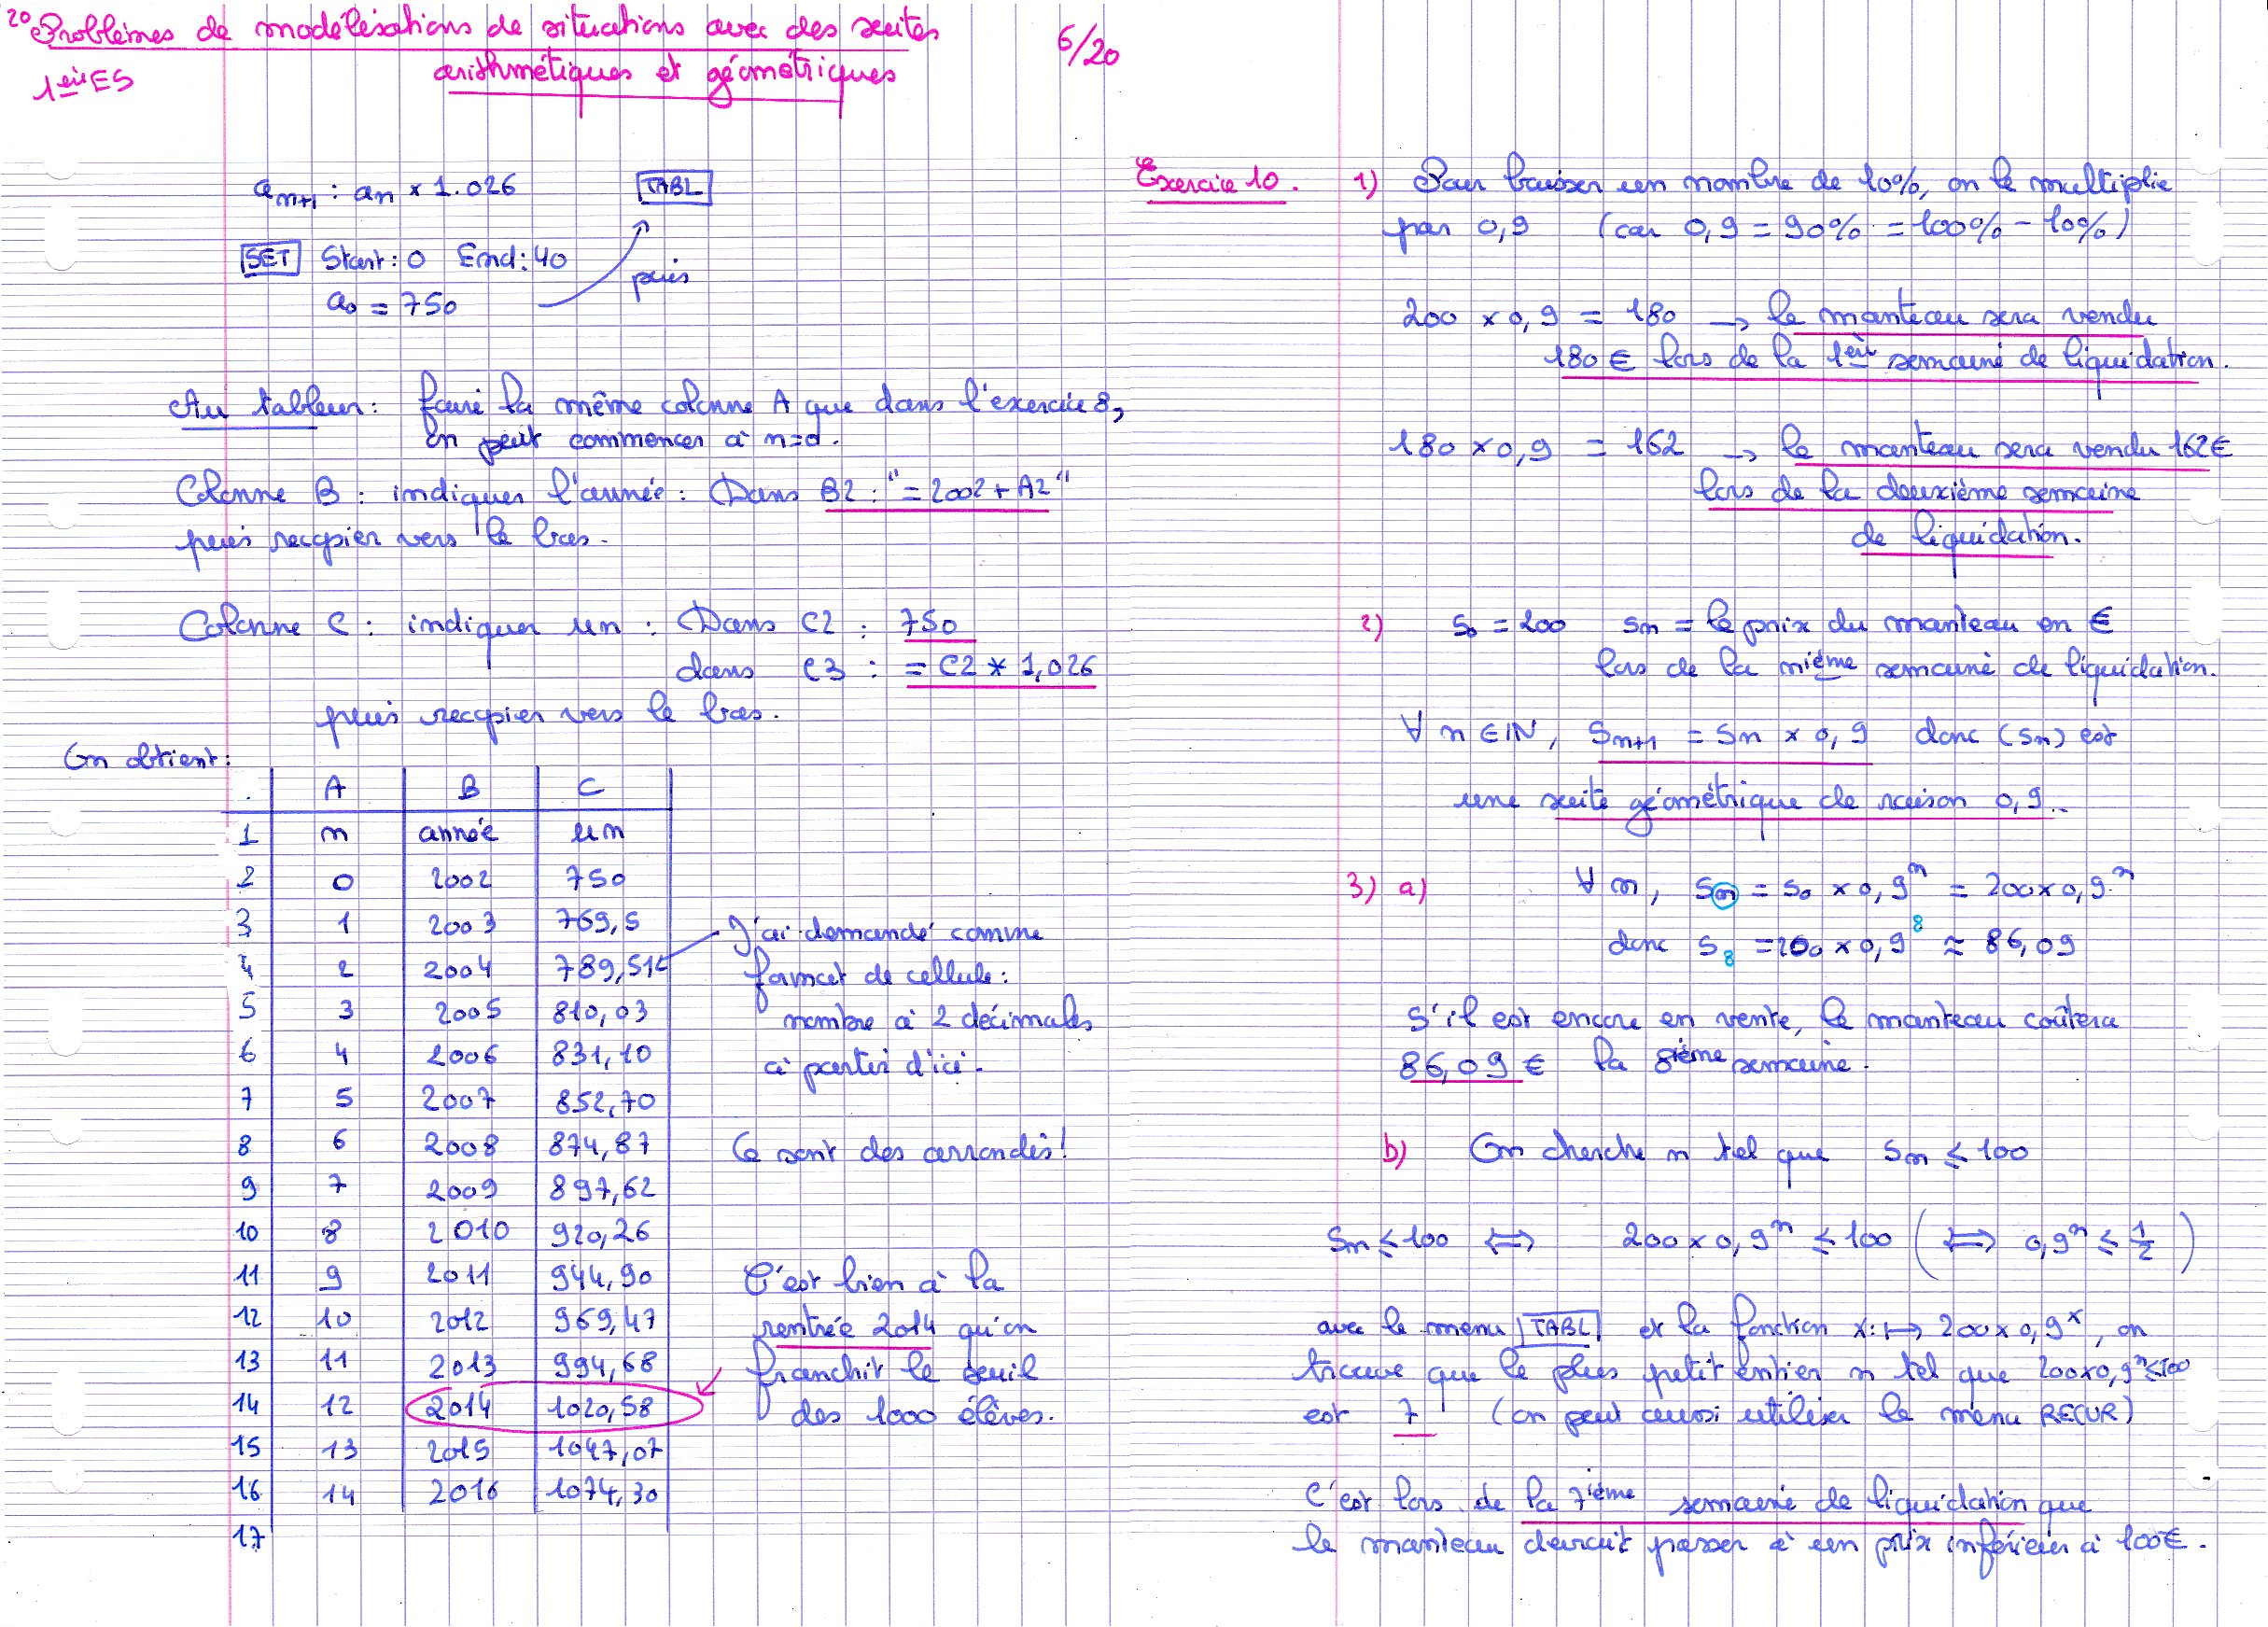 20 Problèmes de modélisations de situations avec des suites
arithmétiques et géométriques
6/20
1ère ES
an+1 : an × 1.026
TABL
SET Start : 0 End : 40
puis
a0 = 750
Au tableur : faire la même colonne A que dans l'exercice 8,
on peut commencer à n=0.
Colonne B : indiquer l'année : Dans B2 : "=2002+A2"
puis recopier vers le bas.
Colonne C : indiquer un : Dans C2 : 750
dans C3 : = C2 * 1,026
puis recopier vers le bas.
On obtient :
A B C
1 n année un
2 0 2002 750
3 1 2003 769,5
4 2 2004 789,51
5 3 2005 810,03
6 4 2006 831,10
7 5 2007 852,70
8 6 2008 874,87
9 7 2009 897,62
10 8 2010 920,26
11 9 2011 944,90
12 10 2012 969,47
13 11 2013 994,68
14 12 2014 1020,58
15 13 2015 1047,07
16 14 2016 1074,30
17
J'ai demandé comme
format de cellule :
nombre à 2 décimales
à partir d'ici.
Ce sont des arrondis !
C'est bien à la
rentrée 2014 qu'on
franchit le seuil
des 1000 élèves.
Exercice 10. 1) Pour baisser un nombre de 10%, on le multiplie
par 0,9 (car 0,9 = 90% = 100% - 10%)
200 × 0,9 = 180 → le manteau sera vendu
180 € lors de la 1ère semaine de liquidation.
180 × 0,9 = 162 → le manteau sera vendu 162 €
lors de la deuxième semaine
de liquidation.
2) s0 = 200 sn = le prix du manteau en €
lors de la nième semaine de liquidation.
∀ n ∈ IN, sn+1 = sn × 0,9 donc (sn) est
une suite géométrique de raison 0,9.
3) a) ∀ n, sn = s0 × 0,9^n = 200 × 0,9^n
donc s8 = 200 × 0,9^8 ≈ 86,09
S'il est encore en vente, le manteau coûtera
86,09 € la 8ième semaine.
b) On cherche n tel que sn ≤ 100
sn ≤ 100 ⟺ 200 × 0,9^n ≤ 100 (⟺ 0,9^n ≤ 1/2)
avec le menu TABL et la fonction x : ↦ 200 × 0,9^x, on
trouve que le plus petit entier n tel que 200×0,9^n ≤ 100
est 7 (on peut aussi utiliser le menu RECUR)
C'est lors de la 7ième semaine de liquidation que
le manteau devrait passer à un prix inférieur à 100 €.